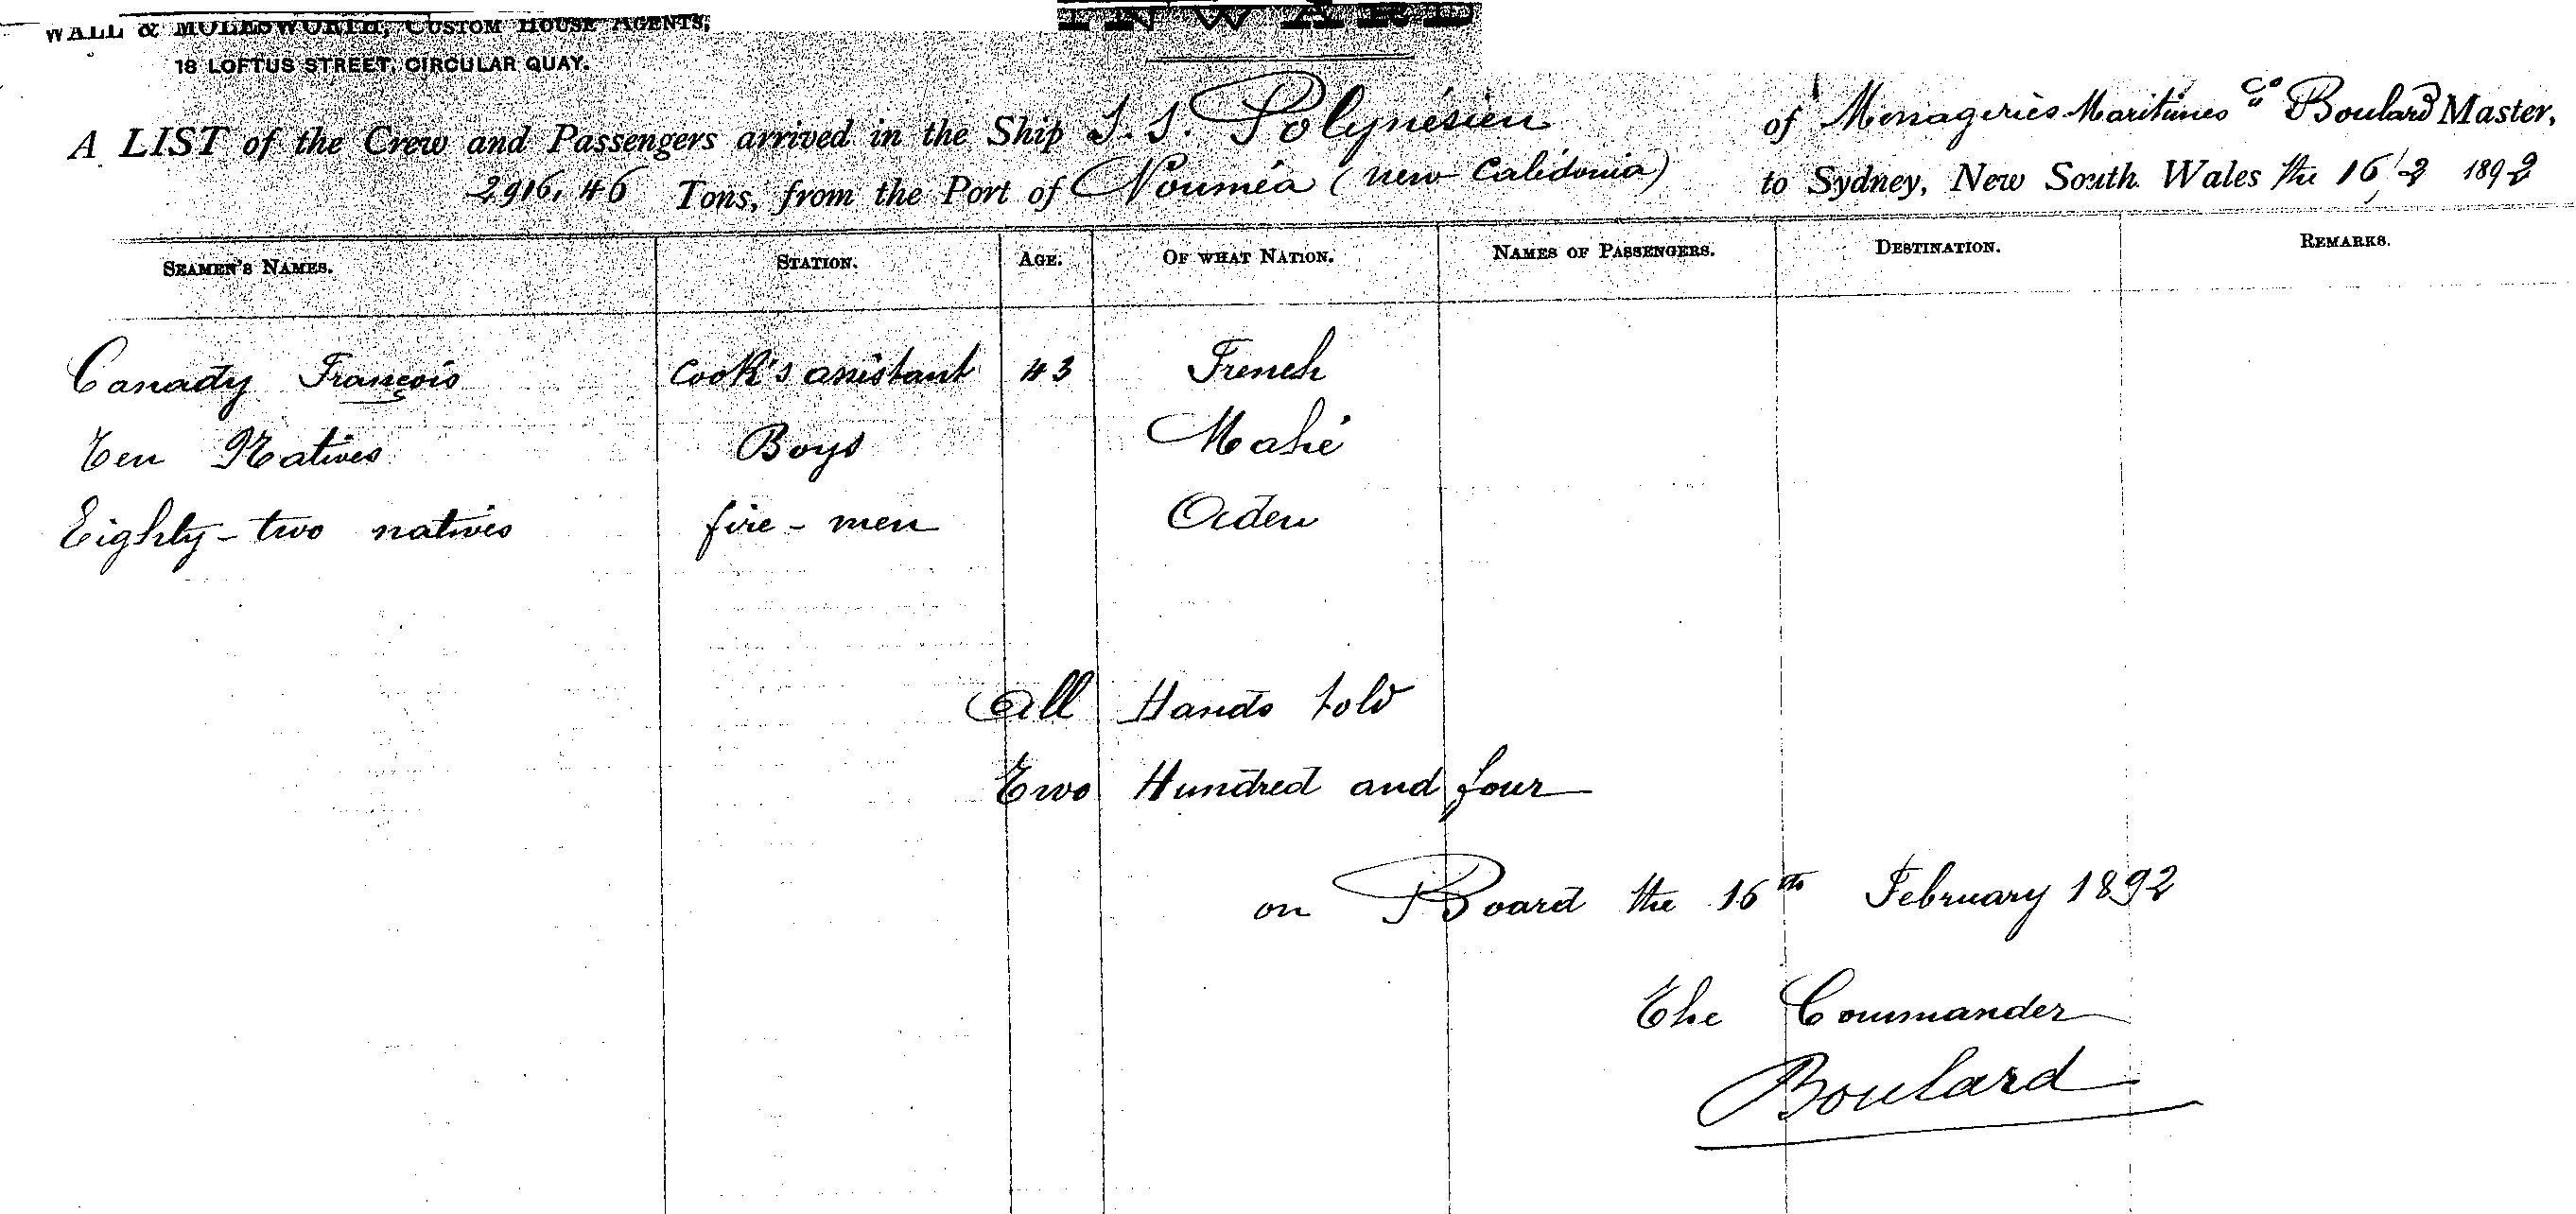 WALL & MOLESWORTH, CUSTOM HOUSE AGENTS,
INWARD
18 LOFTUS STREET, CIRCULAR QUAY.
A LIST of the Crew and Passengers arrived in the Ship S. S. Polynésien of Messageries Maritimes Co Boulard Master,
2916,46 Tons, from the Port of Nouméa (new Calédonia) to Sydney, New South Wales the 16/2 1892
SEAMEN'S NAMES. STATION. AGE. OF WHAT NATION. NAMES OF PASSENGERS. DESTINATION. REMARKS.
Canady François Cook's assistant 43 French
Ten Natives Boys Mahé
Eighty-two natives fire-men Aden
All Hands told
Two Hundred and four
on Board the 16th February 1892
The Commander
Boulard